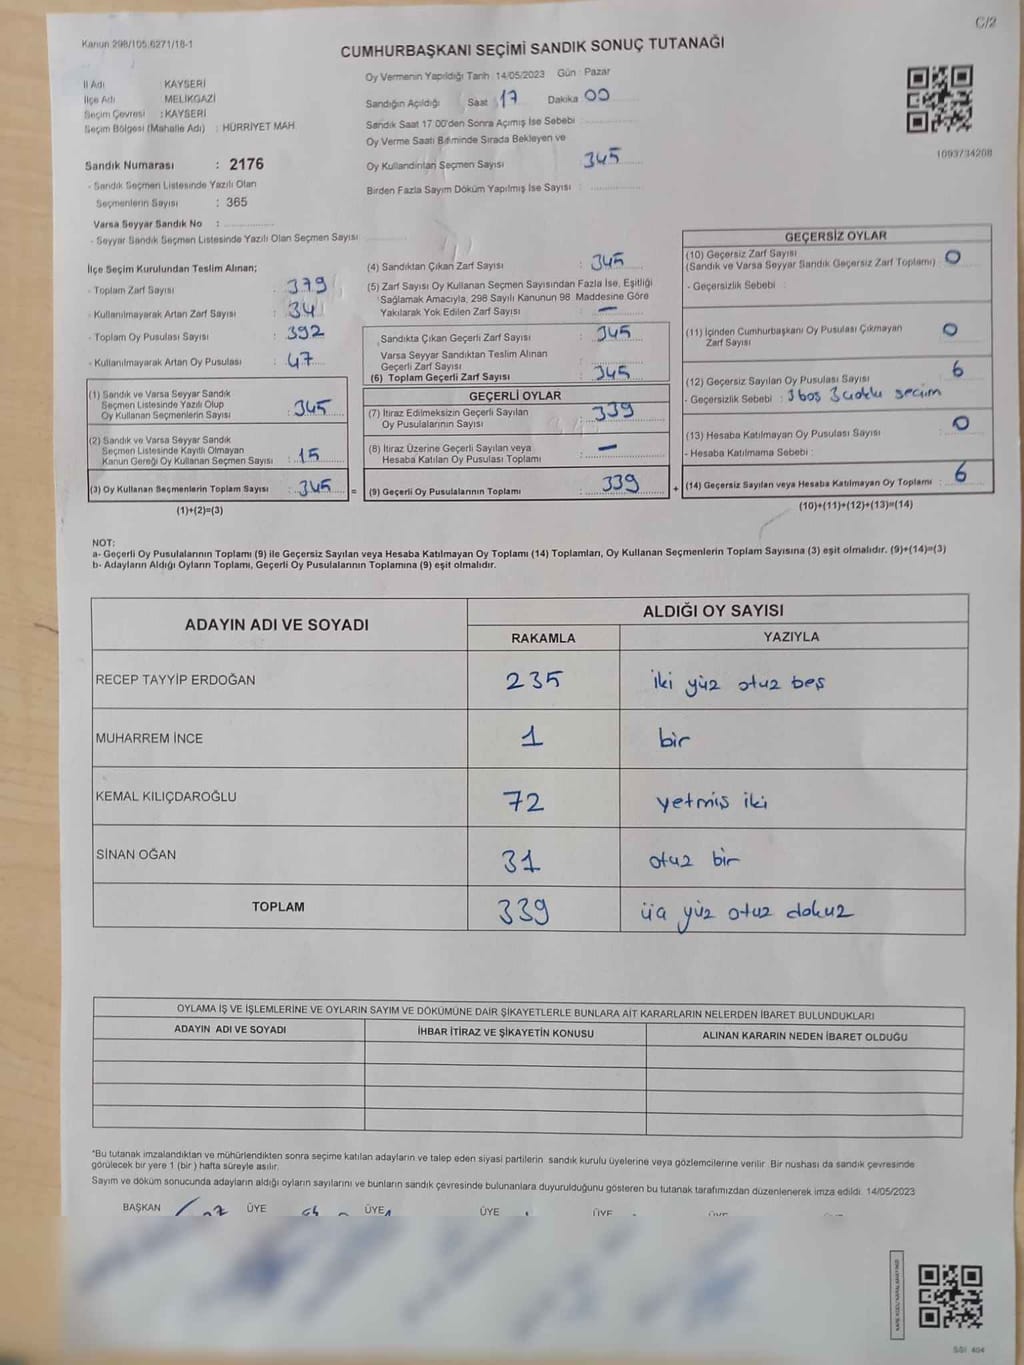 C/2
Kanun 298/105,6271/18-1
CUMHURBAŞKANI SEÇİMİ SANDIK SONUÇ TUTANAĞI
İl Adı KAYSERİ
İlçe Adı MELİKGAZİ
Seçim Çevresi : KAYSERİ
Seçim Bölgesi (Mahalle Adı) : HÜRRİYET MAH.
Sandık Numarası : 2176
- Sandık Seçmen Listesinde Yazılı Olan
Seçmenlerin Sayısı : 365
Varsa Seyyar Sandık No :
- Seyyar Sandık Seçmen Listesinde Yazılı Olan Seçmen Sayısı
Oy Vermenin Yapıldığı Tarih : 14/05/2023 Gün : Pazar
Sandığın Açıldığı Saat 17 Dakika 00
Sandık Saat 17.00'den Sonra Açımış İse Sebebi :
Oy Verme Saati Bitiminde Sırada Bekleyen ve
Oy Kullandırılan Seçmen Sayısı : 345
Birden Fazla Sayım Döküm Yapılmış İse Sayısı :
1093734208
İlçe Seçim Kurulundan Teslim Alınan;
- Toplam Zarf Sayısı : 379
- Kullanılmayarak Artan Zarf Sayısı : 34
- Toplam Oy Pusulası Sayısı : 392
- Kullanılmayarak Artan Oy Pusulası : 47
(1) Sandık ve Varsa Seyyar Sandık
Seçmen Listesinde Yazılı Olup
Oy Kullanan Seçmenlerin Sayısı : 345
(2) Sandık ve Varsa Seyyar Sandık
Seçmen Listesinde Kayıtlı Olmayan
Kanun Gereği Oy Kullanan Seçmen Sayısı : 15
(3) Oy Kullanan Seçmenlerin Toplam Sayısı : 345 =
(1)+(2)=(3)
(4) Sandıktan Çıkan Zarf Sayısı : 345
(5) Zarf Sayısı Oy Kullanan Seçmen Sayısından Fazla İse, Eşitliği
Sağlamak Amacıyla, 298 Sayılı Kanunun 98. Maddesine Göre
Yakılarak Yok Edilen Zarf Sayısı : —
Sandıkta Çıkan Geçerli Zarf Sayısı : 345
Varsa Seyyar Sandıktan Teslim Alınan
Geçerli Zarf Sayısı :
(6) Toplam Geçerli Zarf Sayısı : 345
GEÇERLİ OYLAR
(7) İtiraz Edilmeksizin Geçerli Sayılan
Oy Pusulalarının Sayısı : 339
(8) İtiraz Üzerine Geçerli Sayılan veya
Hesaba Katılan Oy Pusulası Toplamı : —
(9) Geçerli Oy Pusulalarının Toplamı : 339 +
GEÇERSİZ OYLAR
(10) Geçersiz Zarf Sayısı
(Sandık ve Varsa Seyyar Sandık Geçersiz Zarf Toplamı) : 0
- Geçersizlik Sebebi :
(11) İçinden Cumhurbaşkanı Oy Pusulası Çıkmayan
Zarf Sayısı 0
(12) Geçersiz Sayılan Oy Pusulası Sayısı : 6
- Geçersizlik Sebebi : 3 boş 3 çoklu seçim
(13) Hesaba Katılmayan Oy Pusulası Sayısı : 0
- Hesaba Katılmama Sebebi :
(14) Geçersiz Sayılan veya Hesaba Katılmayan Oy Toplamı : 6
(10)+(11)+(12)+(13)=(14)
NOT:
a- Geçerli Oy Pusulalarının Toplamı (9) ile Geçersiz Sayılan veya Hesaba Katılmayan Oy Toplamı (14) Toplamları, Oy Kullanan Seçmenlerin Toplam Sayısına (3) eşit olmalıdır. (9)+(14)=(3)
b- Adayların Aldığı Oyların Toplamı, Geçerli Oy Pusulalarının Toplamına (9) eşit olmalıdır.
ADAYIN ADI VE SOYADI ALDIĞI OY SAYISI
RAKAMLA YAZIYLA
RECEP TAYYİP ERDOĞAN 235 iki yüz otuz beş
MUHARREM İNCE 1 bir
KEMAL KILIÇDAROĞLU 72 yetmiş iki
SİNAN OĞAN 31 otuz bir
TOPLAM 339 üç yüz otuz dokuz
OYLAMA İŞ VE İŞLEMLERİNE VE OYLARIN SAYIM VE DÖKÜMÜNE DAİR ŞİKAYETLERLE BUNLARA AİT KARARLARIN NELERDEN İBARET BULUNDUKLARI
ADAYIN ADI VE SOYADI İHBAR İTİRAZ VE ŞİKAYETİN KONUSU ALINAN KARARIN NEDEN İBARET OLDUĞU
*Bu tutanak imzalandıktan ve mühürlendikten sonra seçime katılan adayların ve talep eden siyasi partilerin sandık kurulu üyelerine veya gözlemcilerine verilir. Bir nüshası da sandık çevresinde
görülecek bir yere 1 (bir ) hafta süreyle asılır.
Sayım ve döküm sonucunda adayların aldığı oyların sayılarını ve bunların sandık çevresinde bulunanlara duyurulduğunu gösteren bu tutanak tarafımızdan düzenlenerek imza edildi. 14/05/2023
BAŞKAN ÜYE ÜYE ÜYE ÜYE
SSI 404